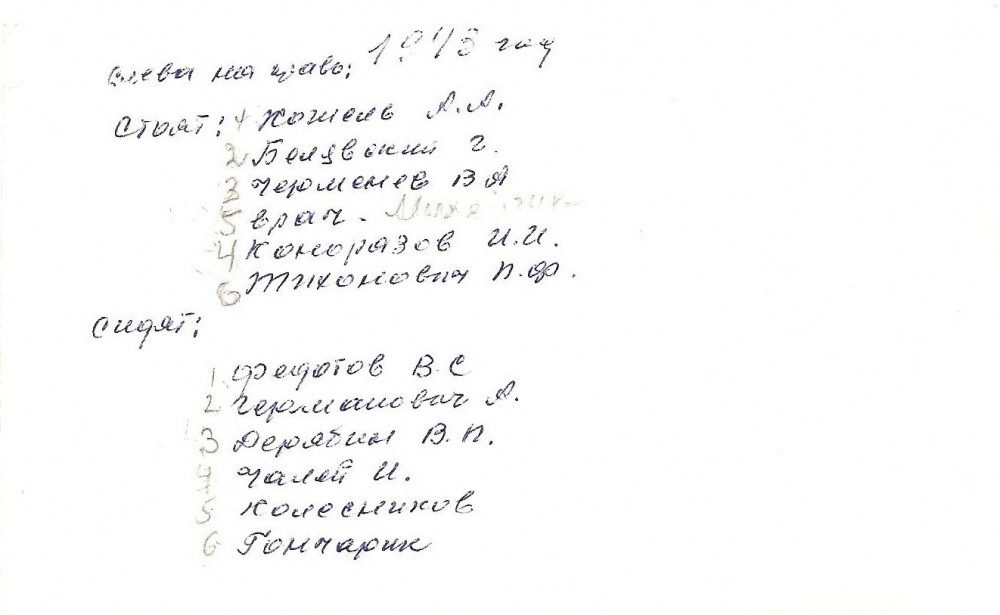 слева на право: 1943 год
Стоят: 1 Кошель А.А.
2 Белявский Г.
3 Черменев В А
5 врач.
4 Коноразов И.И.
6 Тихонович П.Ф.
Сидят:
1 Федотов В.С
2 Германович А.
3 Дерябин В.П.
4 Чалей И.
5 Колесников
6 Гончарик